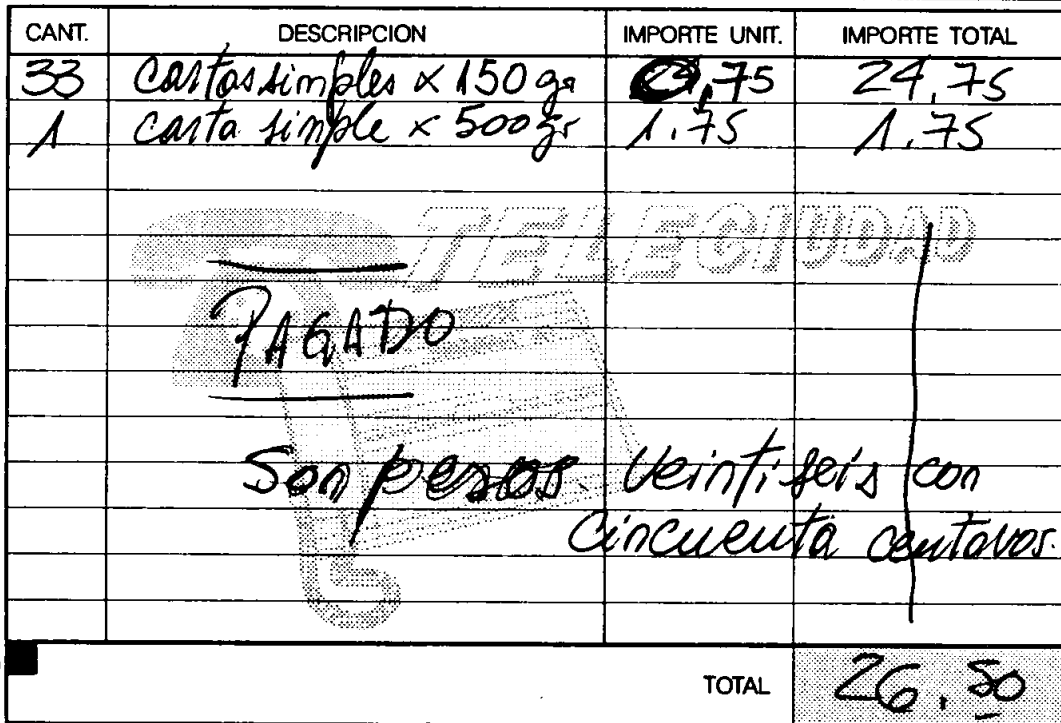 CANT. DESCRIPCION IMPORTE UNIT. IMPORTE TOTAL
33 cartas simples x 150 gr ,75 24,75
1 carta simple x 500 gr 1.75 1.75
TELECIUDAD
PAGADO
Son pesos veintiseis con
cincuenta centavos.
TOTAL 26.50